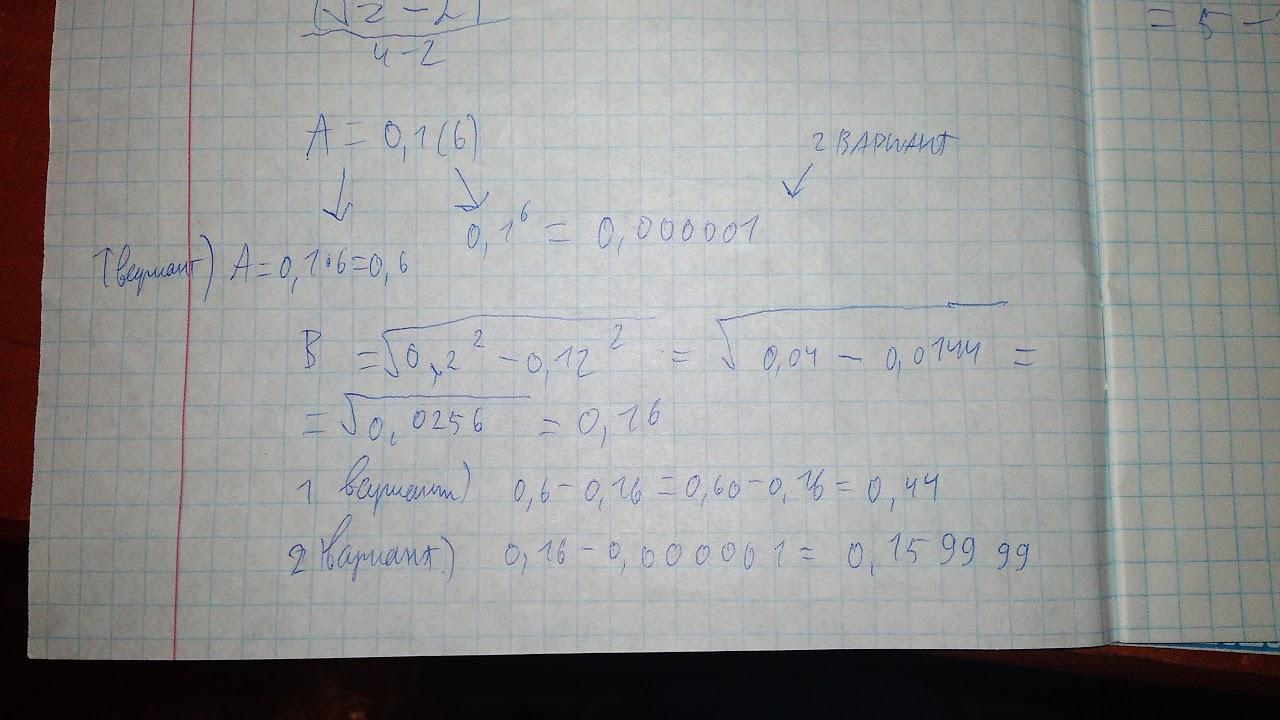 √2 - 2
4-2
= 5 -
A = 0,1(6)
2 ВАРИАНТ
0,1⁶ = 0,000001
1 вариант) A = 0,1·6=0,6
B = √0,2² - 0,12² = √0,04 - 0,0144 =
= √0,0256 = 0,16
1 вариант) 0,6 - 0,16 = 0,60 - 0,16 = 0,44
2 вариант) 0,16 - 0,000001 = 0,159999